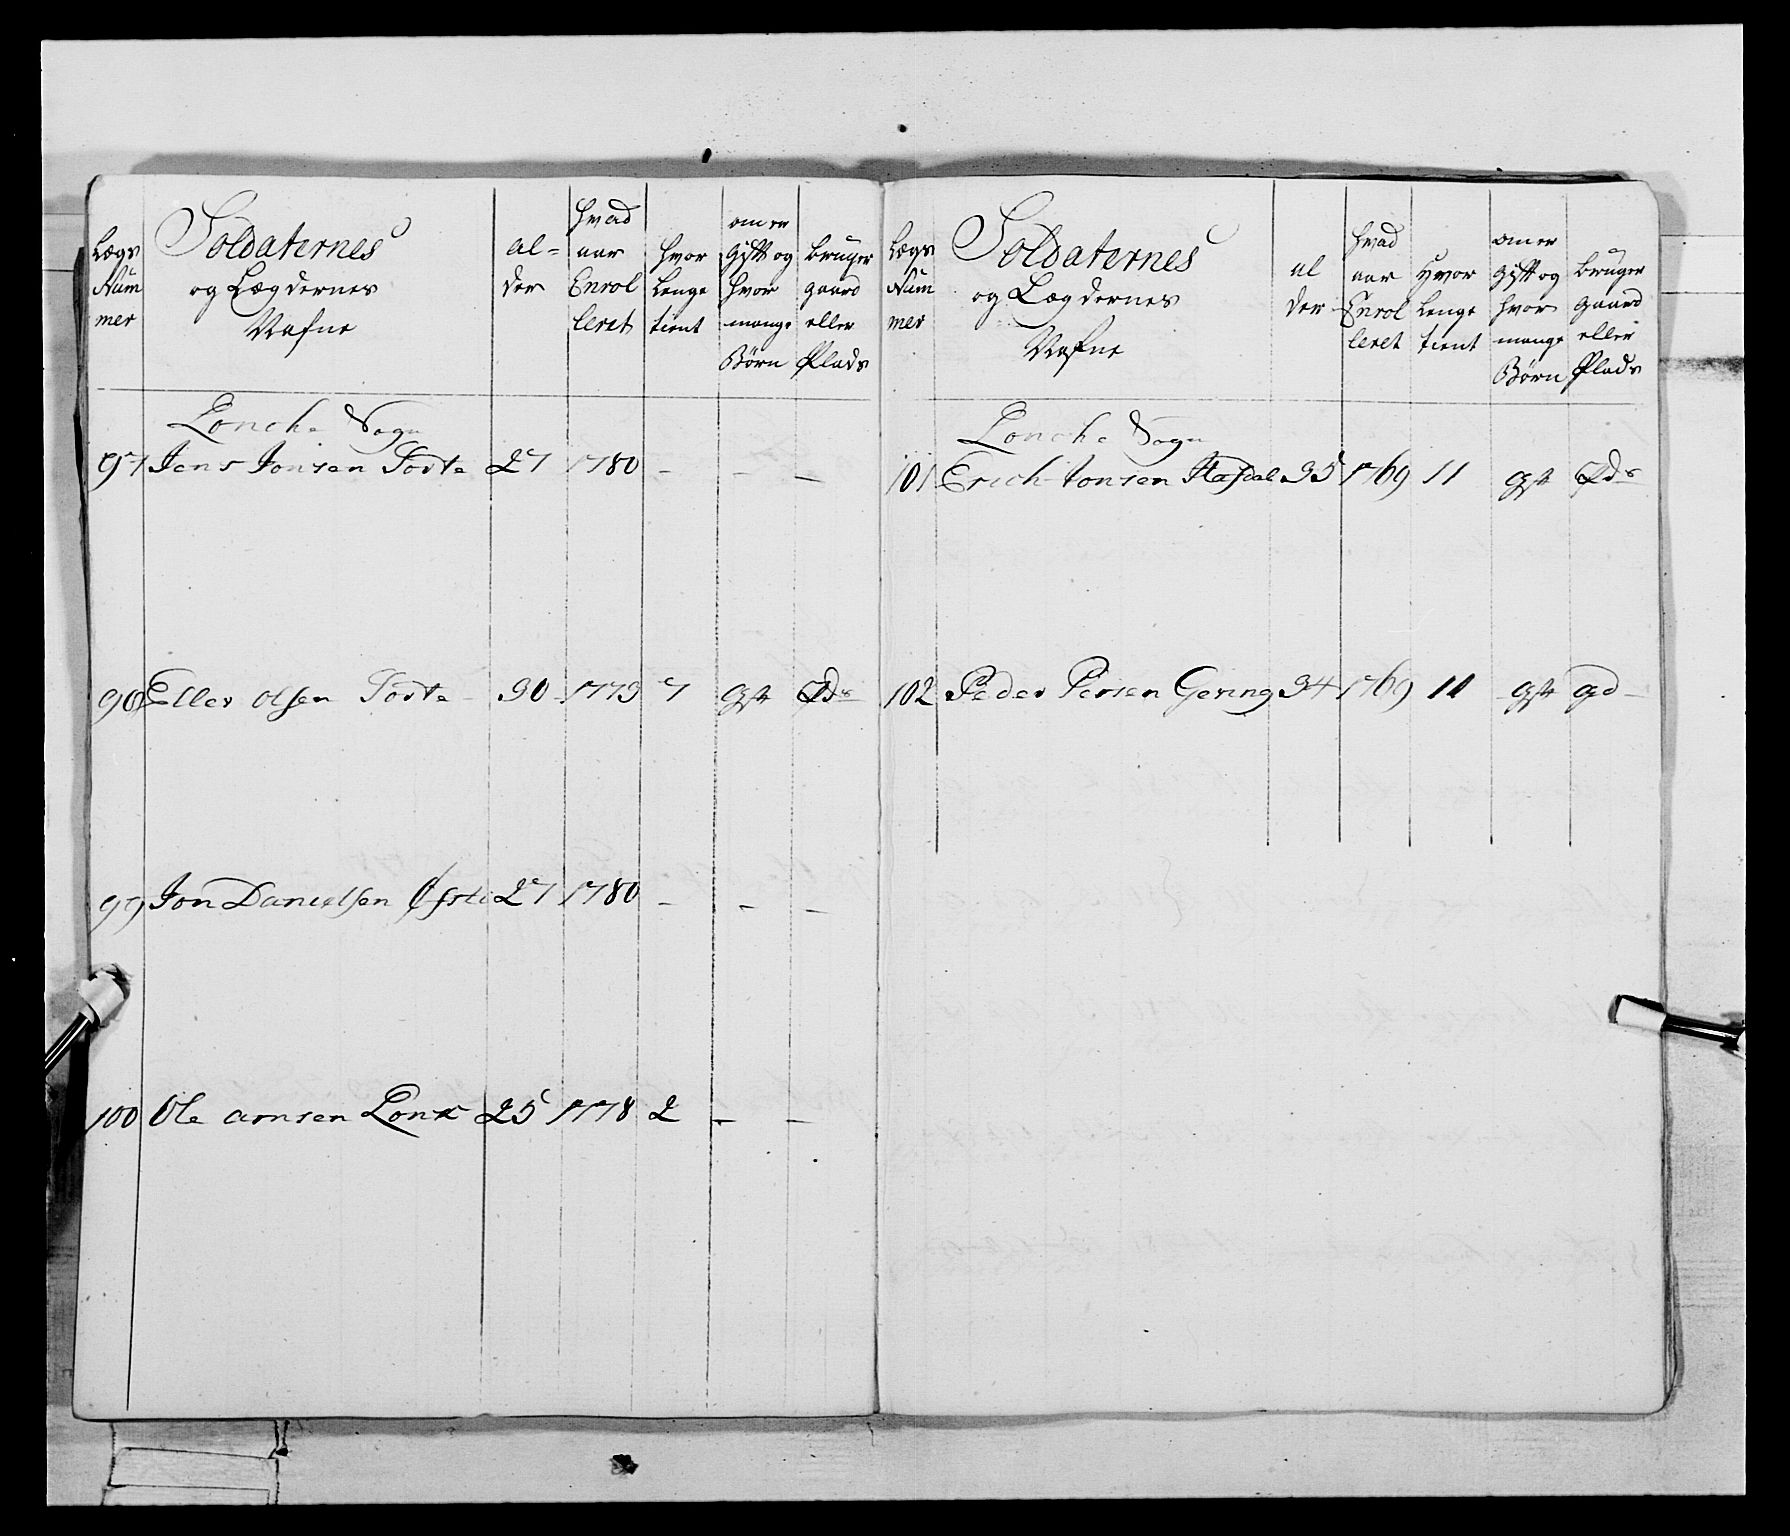 Lægs
Num
mer
Soldaternes
og Lægdernes
Nafne
al=
der
hvad
aar
Enrol
leret
hvor
Lenge
tient
om er
gift og
hvor
mange
Børn
bruger
gaard
eller
Plads
Lonche Sogn
97 Jens Jonsen Torte 27 1780 - - -
98 Eller olsen Torte - 30 - 1773 7 gft Pds
99 Jon Danielsen Øfsti 27 1780 - - -
100 Ole arnsen Lonk 25 1778 2 - -
Lægs
Num
mer
Soldaternes
og Lægdernes
Nafne
al
der
hvad
aar
Enrol
leret
Hvor
Lenge
tient
om er
gift og
hvor
mange
Børn
bruger
gaard
eller
Plads
Lonche Sogn
101 Erich Jonsen 35 1769 11 gft Pds
102 Peder Persen Gering 34 1769 11 - gft gd -